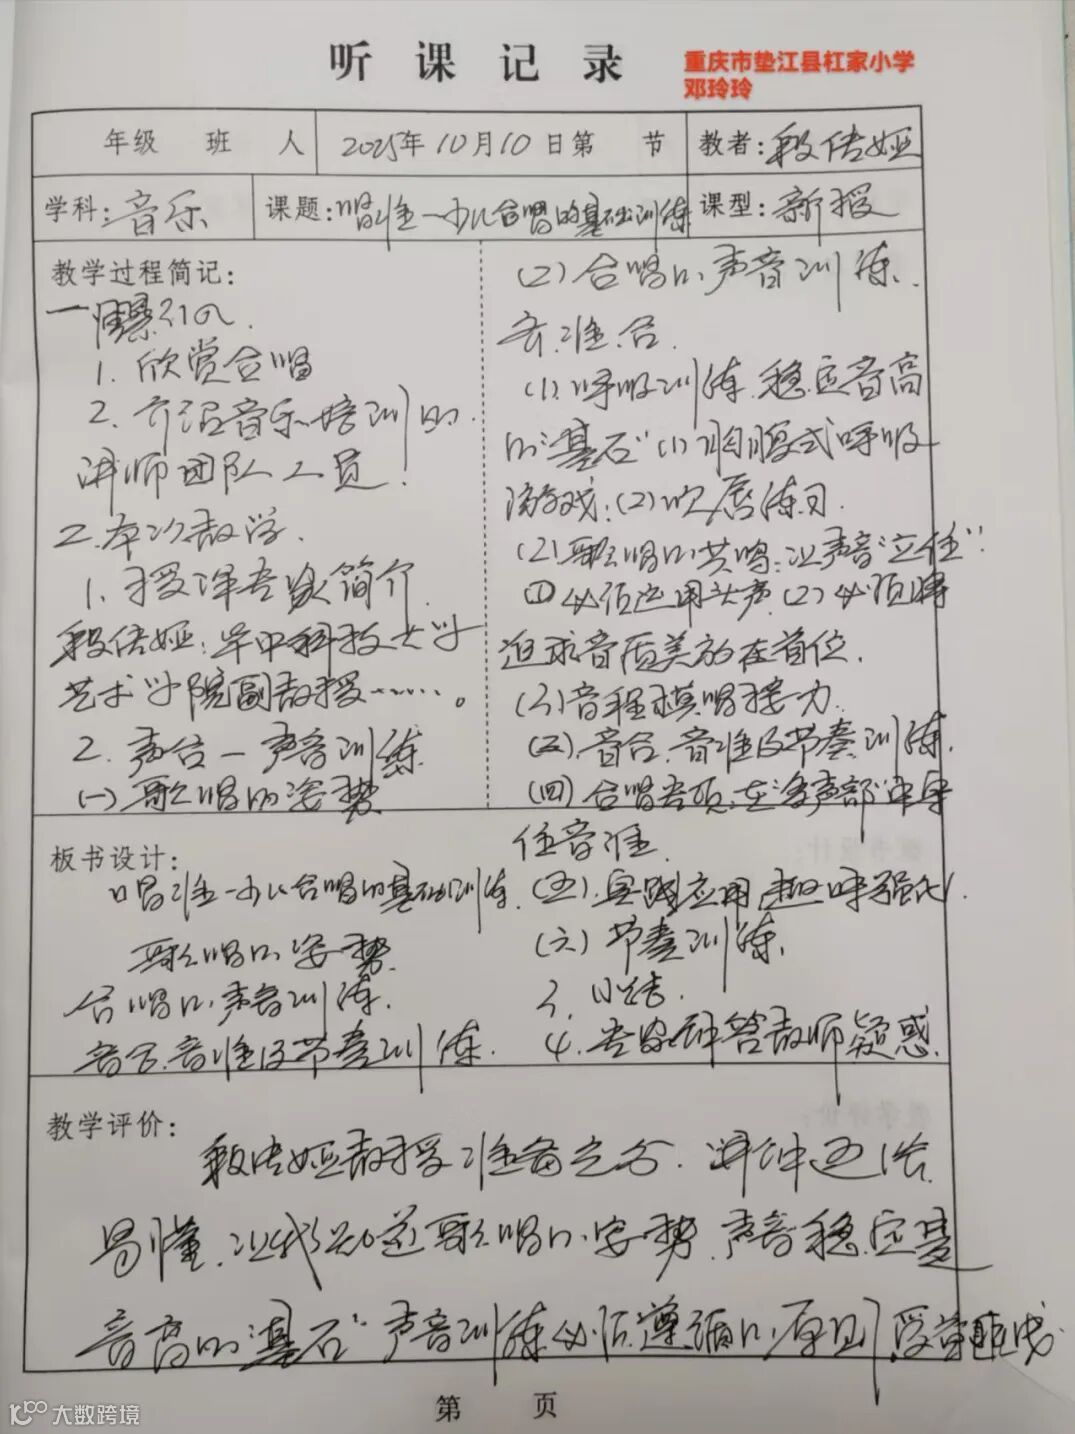 听课记录
重庆市垫江县杠家小学
邓玲玲
年级 班 人 2025年10月10日第 节 教者:段传娅
学科:音乐 课题:唱准—少儿合唱的基础训练 课型:新授
教学过程简记:
一.情景引入.
1. 欣赏合唱
2. 介绍音乐培训的
讲师团队人员.
二.本次教学.
1. 授课专家简介.
段传娅:华中科技大学
艺术学院副教授……。
2. 声合—声音训练
(一)歌唱的姿势
(2)合唱的声音训练.
音.准.合.
(1).呼吸训练.稳定音高
的"基石"(1)胸腹式呼吸
游戏:(2)吹唇练习.
(2).歌唱的共鸣:让声音"立住".
①必须运用头声.(2)必须将
追求音质美放在首位.
(3)音程模唱接力.
(三).音合.音准及节奏训练.
(四)合唱专项:在"多声部"中
住音准.
(五).实践应用,趣味强化.
(六)节奏训练.
3. 小结.
4. 专家解答教师疑惑.
板书设计:
唱准—少儿合唱的基础训练.
歌唱的姿势.
合唱的声音训练.
音合.音准及节奏训练.
教学评价:
段传娅教授准备充分.讲解通俗
易懂.让我知道歌唱的姿势.声音稳定是
音高的"基石"声音训练必须遵循的原则.受益匪浅
第 页
大数跨境